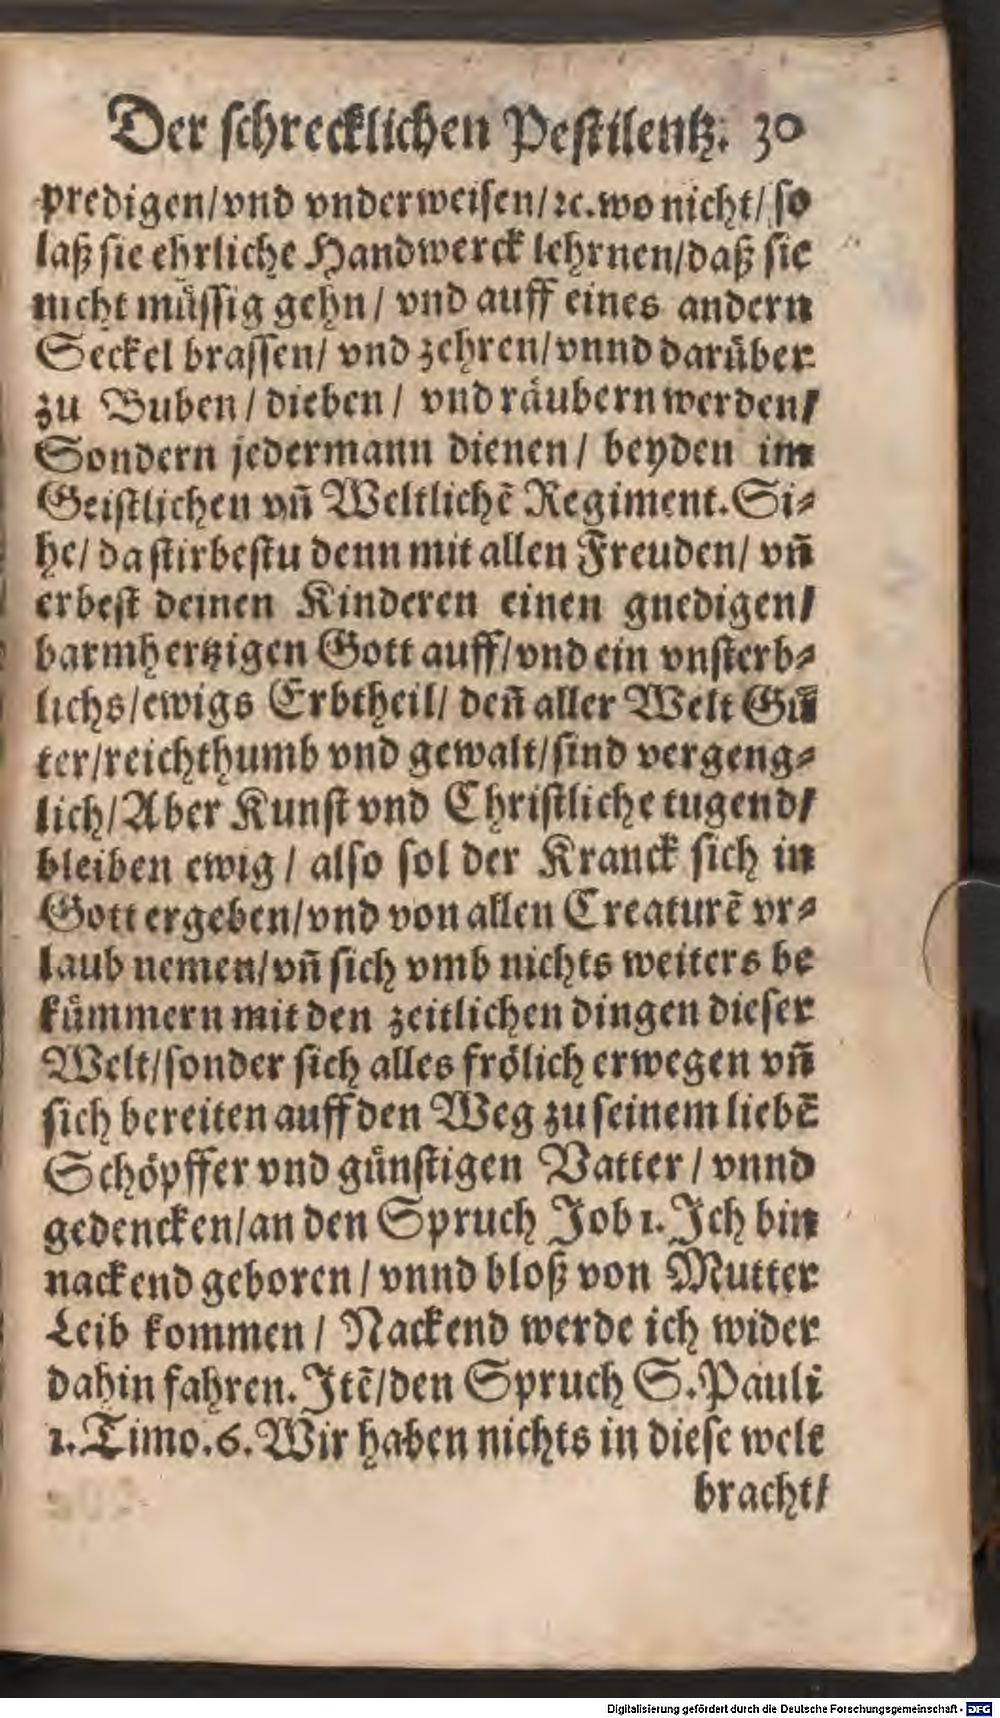 Der schrecklichen Pestilentz. 30
predigen/vnd vnderweisen/ꝛc.wo nicht/so
laß sie ehrliche Handwerck lehrnen/daß sie
nicht müssig gehn/ vnd auff eines andern
Seckel brassen/ vnd zehren/vnnd darüber
zu Buben/ dieben/ vnd räubern werden/
Sondern jedermann dienen/ beyden im
Geistlichen vñ Weltlichẽ Regiment.Si⸗
he/ da stirbestu denn mit allen Freuden/ vñ
erbest deinen Kinderen einen gnedigen/
barmhertzigen Gott auff/vnd ein vnsterb⸗
lichs/ewigs Erbtheil/ deñ aller Welt Gü
ter/reichthumb vnd gewalt/sind vergeng⸗
lich/Aber Kunst vnd Christliche tugend/
bleiben ewig/ also sol der Kranck sich in
Gott ergeben/vnd von allen Creaturẽ vr⸗
laub nemen/vñ sich vmb nichts weiters be
kümmern mit den zeitlichen dingen dieser
Welt/sonder sich alles frölich erwegen vñ
sich bereiten auff den Weg zu seinem liebẽ
Schöpffer vnd günstigen Vatter/ vnnd
gedencken/an den Spruch Job 1. Ich bin
nackend geboren/ vnnd bloß von Mutter
Leib kommen/ Nackend werde ich wider
dahin fahren. Itẽ/den Spruch S.Pauli
1.Timo.6.Wir haben nichts in diese welt
bracht/
Digitalisierung gefördert durch die Deutsche Forschungsgemeinschaft - DFG